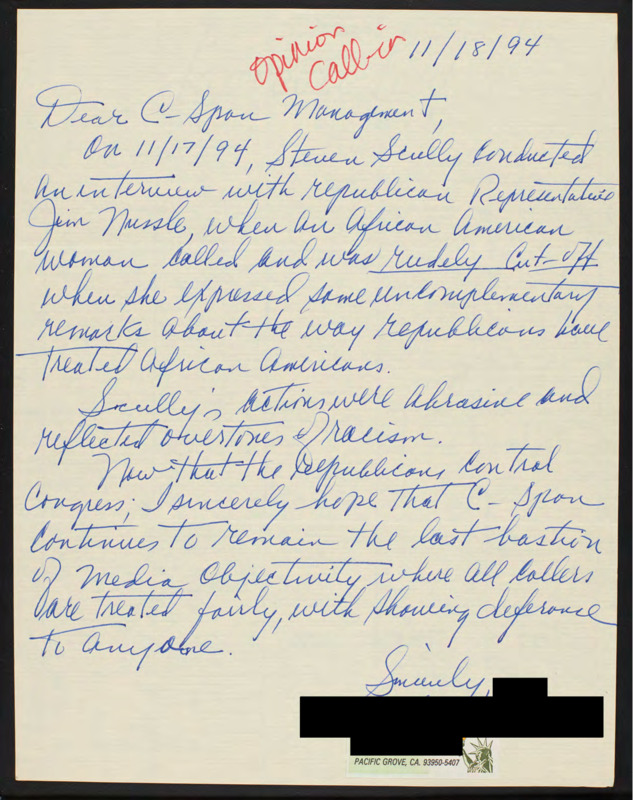 Opinion
Call-in
11/18/94
Dear C-Span Management,
On 11/17/94, Steven Scully conducted
an interview with republican Representative
Jim Nussle, when an African American
woman called and was rudely cut-off
when she expressed some uncomplementary
remarks about the way republicans have
treated African Americans.
Scully's actions were abrasive and
reflected overtones of racism.
Now that the republicans control
Congress; I sincerely hope that C-Span
continues to remain the last bastion
of media objectivity where all callers
are treated fairly, with showing deferance
to anyone.
Sincerely,
PACIFIC GROVE, CA. 93950-5407